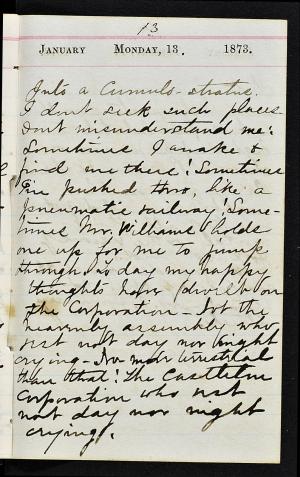 13
JANUARY MONDAY, 13. 1873.
Into a Cumulo-stratus.
I dont seek such places
dont misunderstand me:
Sometimes I awake &
find me there! Sometimes
I'm pushed thro, like a
pneumatic railway! Some-
times Mr. Williams holds
one up for me to jump
through. to day my happy
thoughts have dwelt on
the Corporation - Not the
heavenly assembly who
rest not day nor night
crying - I'm more terrestrial
than that! The Castleton
Corporation who rest
not day nor night
crying.